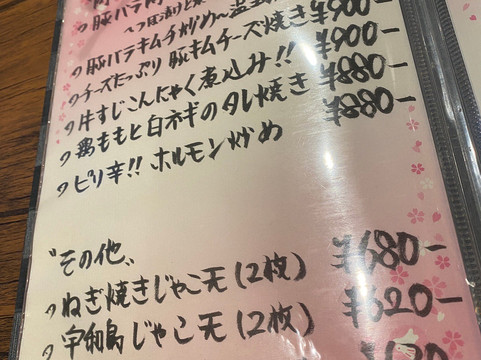 豚バラキムチ炒め〜温玉 ¥900-
チーズたっぷり豚キムチーズ焼き ¥900-
牛すじこんにゃく煮込み!! ¥880-
鶏ももと白ネギのタレ焼き ¥880-
ピリ辛!! ホルモン炒め
"その他〟
ねぎ焼きじゃこ天(2枚) ¥680-
宇和島じゃこ天(2枚) ¥620-